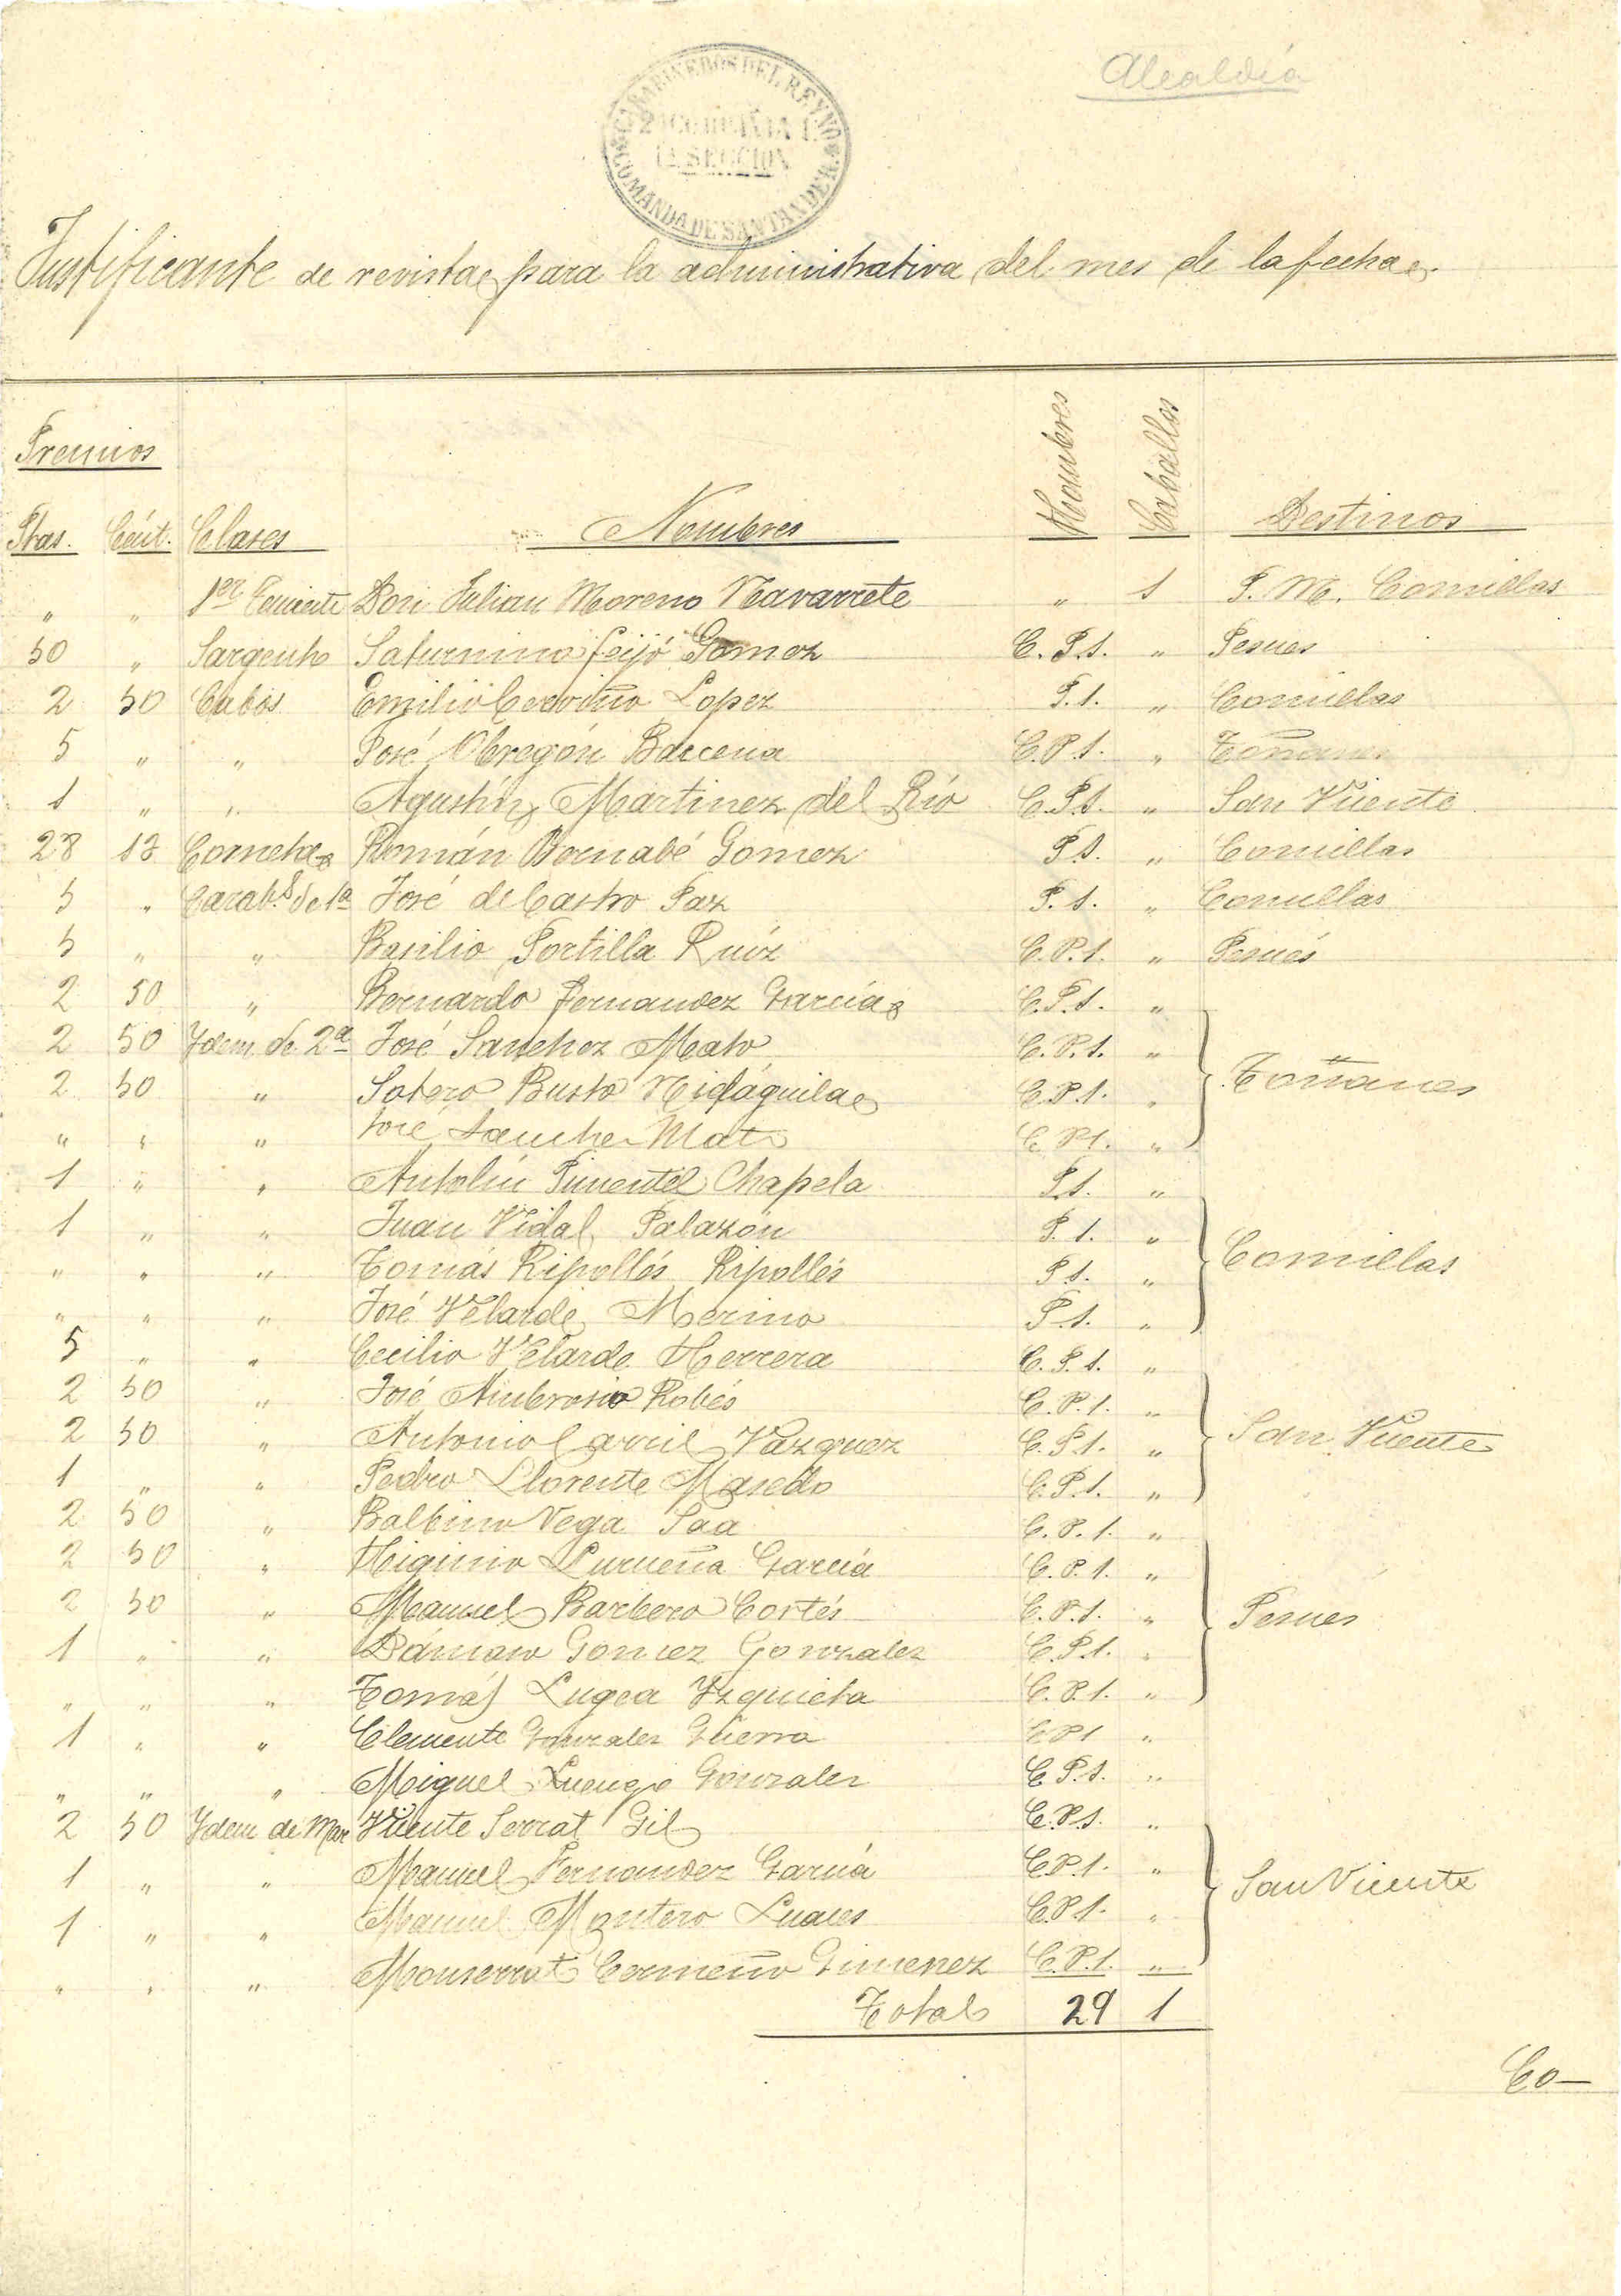 Alcaldía
CARABINEROS DEL REYNO
COMANDA DE SANTANDER
SECCION
Justificante de revista para la administrativa del mes de la fecha
Premios
Ptas. Cént. Clases Nombres Hombres Caballos Destinos
" " 1er Teniente Don Julian Moreno Navarrete " 1 P. M. Comillas
50 " Sargento Saturnino Feijó Gomez C. P. 1. " Pesues
2 50 Cabos Emilio Cerviño Lopez P. 1. " Comillas
5 " " José Obregón Barcena C. P. 1. " Toñanes
1 " " Agustín Martinez del Río C. P. 1. " San Vicente
28 13 Corneta Román Bernabé Gomez P. 1. " Comillas
5 " Carabs de 1a José de Castro Paz P. 1. " Comillas
5 " " Basilio Portilla Ruiz C. P. 1. " Pesués
2 50 " Bernardo Fernandez García C. P. 1. "
2 50 Ydem de 2a José Sanchez Mato C. P. 1. " Toñanes
2 50 " Sotero Busto C. P. 1. "
" " " José Sanchez Mato C. P. 1. "
1 " " Antolín Pimentel Chapela P. 1. "
1 " " Juan Vidal Palazón P. 1. " Comillas
" " " Tomás Ripollés Ripollés P. 1. "
" " " José Velarde Merino P. 1. "
5 " " Cecilio Velarde Herrera C. P. 1. "
2 50 " José Ambrosio Robés C. P. 1. " San Vicente
2 50 " Antonio Carril Vazquez C. P. 1. "
1 " " Pedro Llorente Masedo C. P. 1. "
2 50 " Balbino Vega Saa C. P. 1. "
2 50 " Higinio Purueña García C. P. 1. "
2 50 " Manuel Barbero Cortés C. P. 1. " Pesues
1 " " Dámaso Gomez Gonzalez C. P. 1. "
" " " Tomás Lugea Yzquieta C. P. 1. "
1 " " Clemente Gonzalez Guerra C P 1 "
" " " Miguel Luengo Gonzalez C. P. 1. "
2 50 Ydem de Mar Vicente Serrat Gil C. P. 1. "
1 " " Manuel Fernandez García C. P. 1. " San Vicente
1 " " Manuel Montero Luaces C. P. 1. "
" " " Monserrat Cermeño Gimenez C. P. 1. "
Total 29 1
Co—